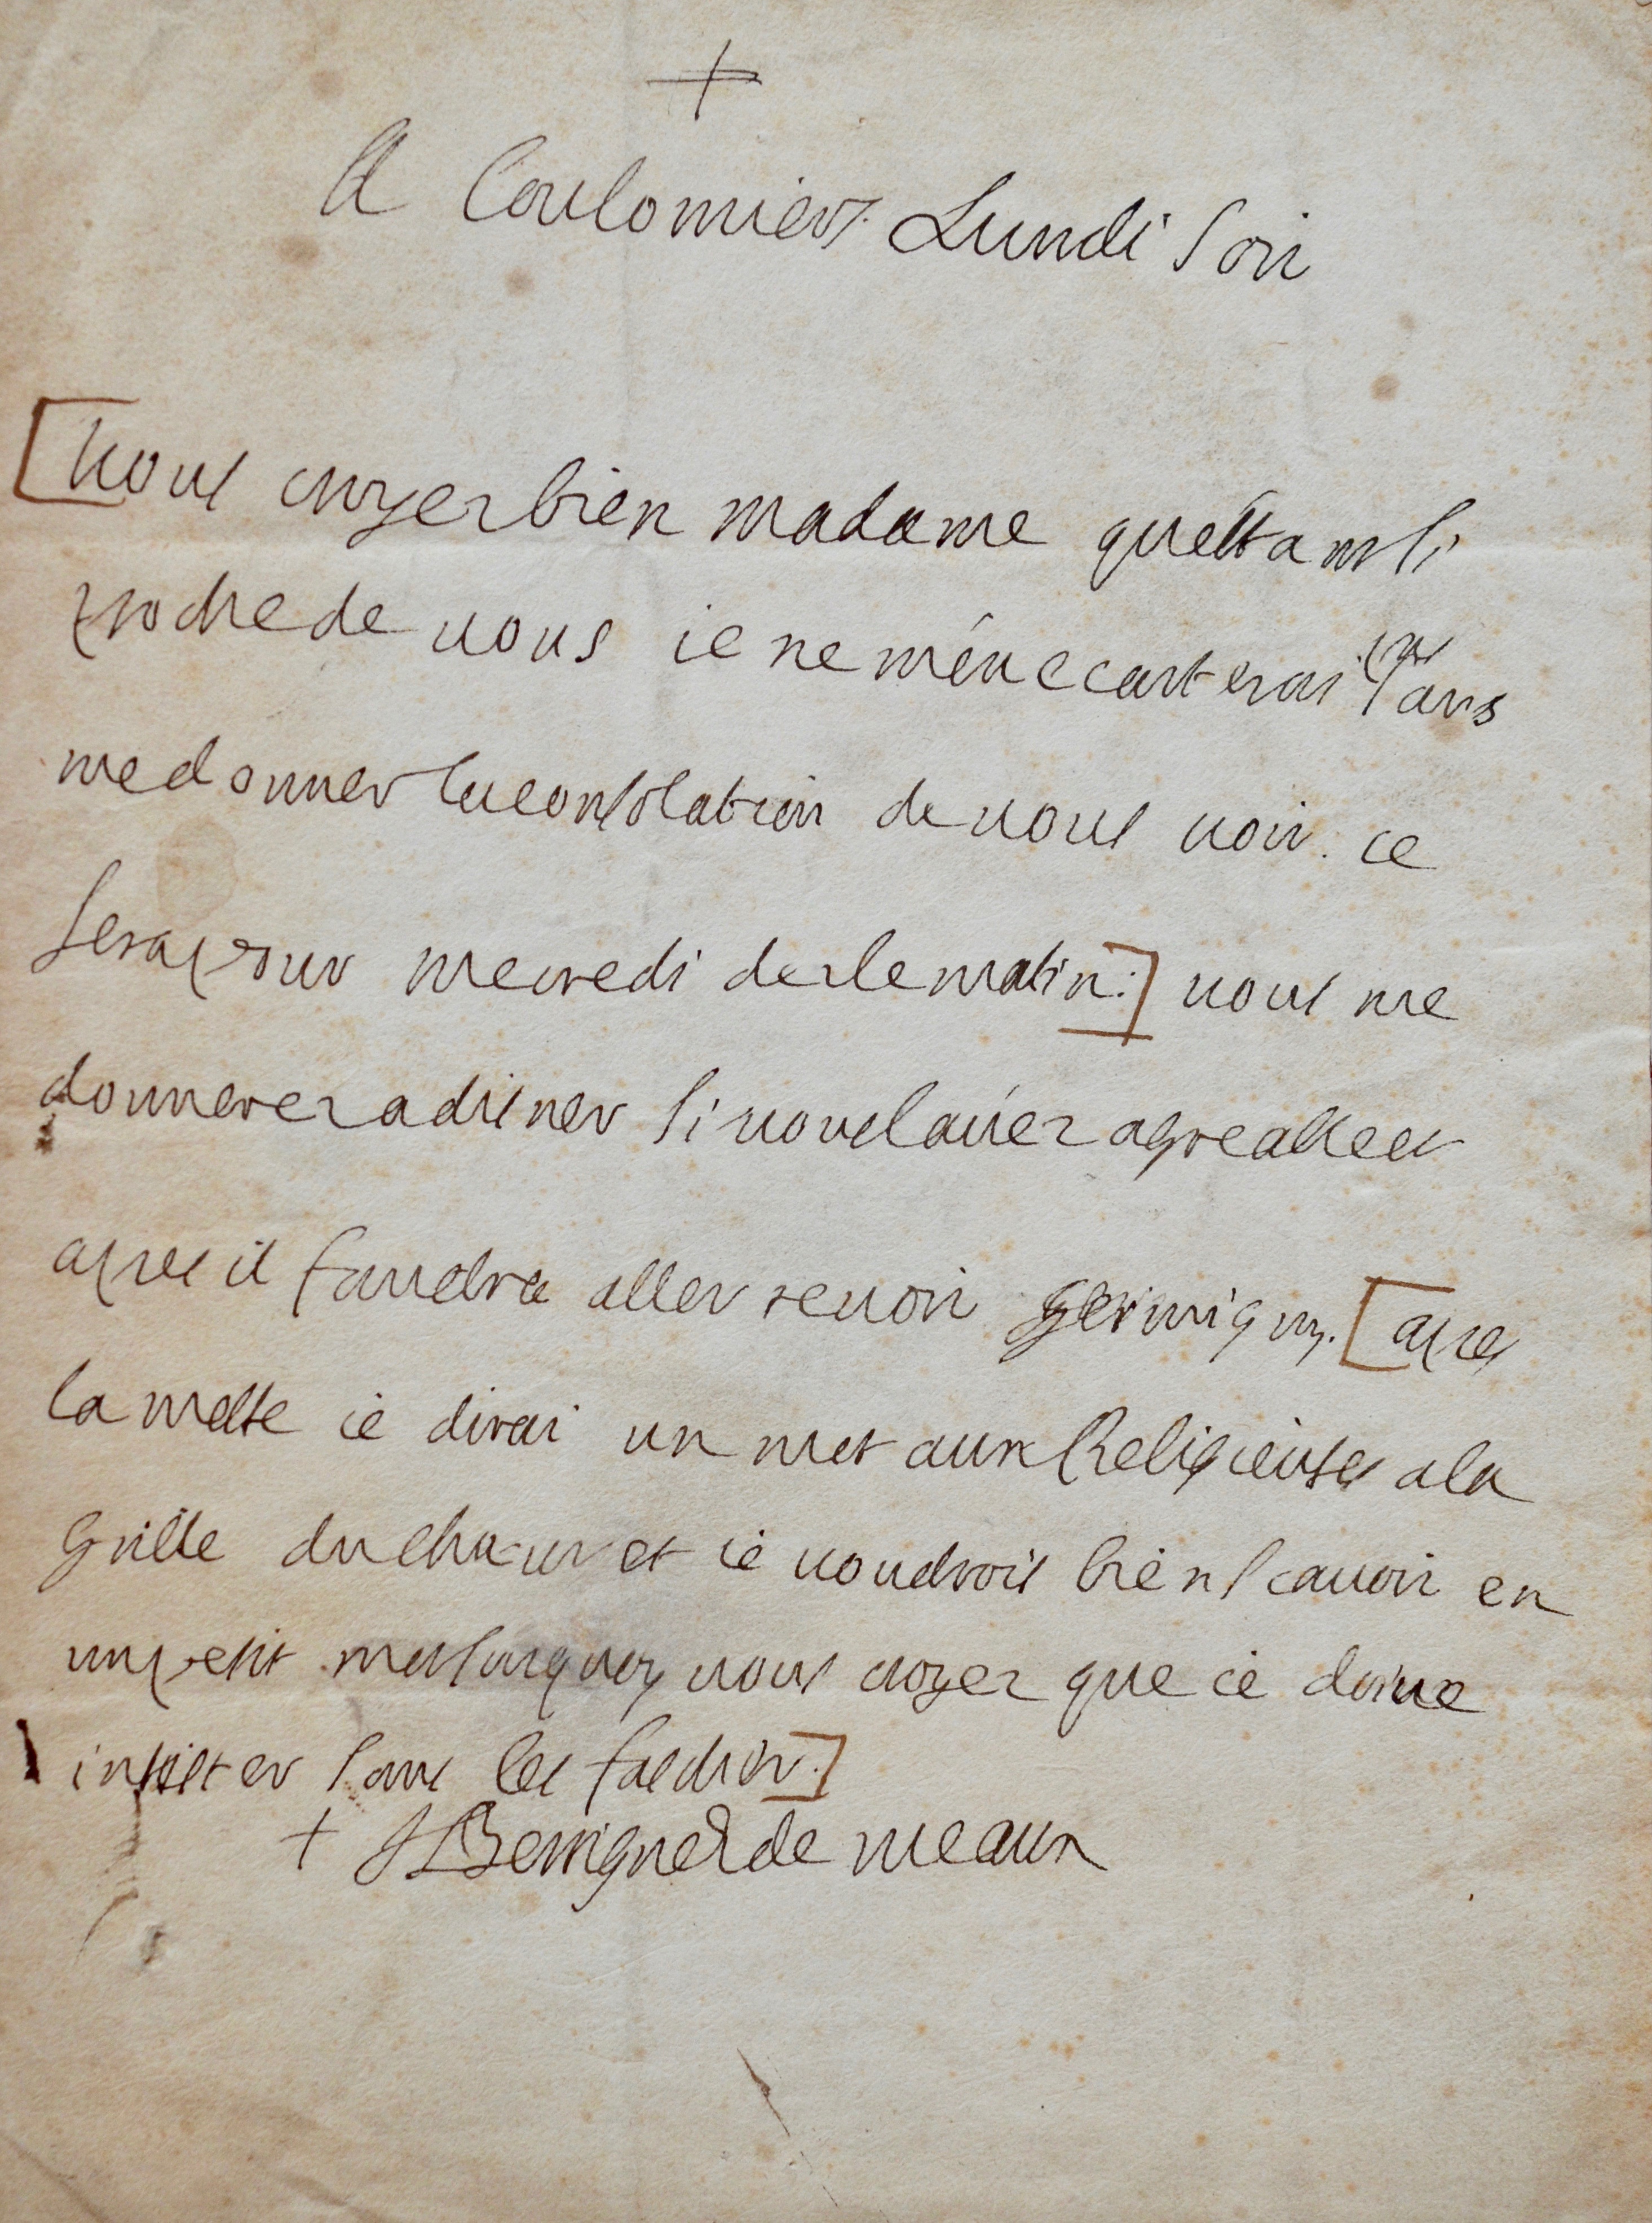 +
A Coulomiers. Lundi soir
[vous croyez bien madame questant si
proche de vous ie ne mén ecarterai pas sans
me donner la consolation de vous voir. ce
sera pour mecredi dez le matin.] vous me
donnerez a disner si vous l'aiiez agreable et
apres il faudra aller revoir germigny. [apres
la messe ie dirai un mot aux Religieuses a la
Grille du chœur et ie voudrois bien scavoir en
un petit mot surquoy vous croyez que ie doive
insister sans les fascher.]
+ J Benigne E de meaux